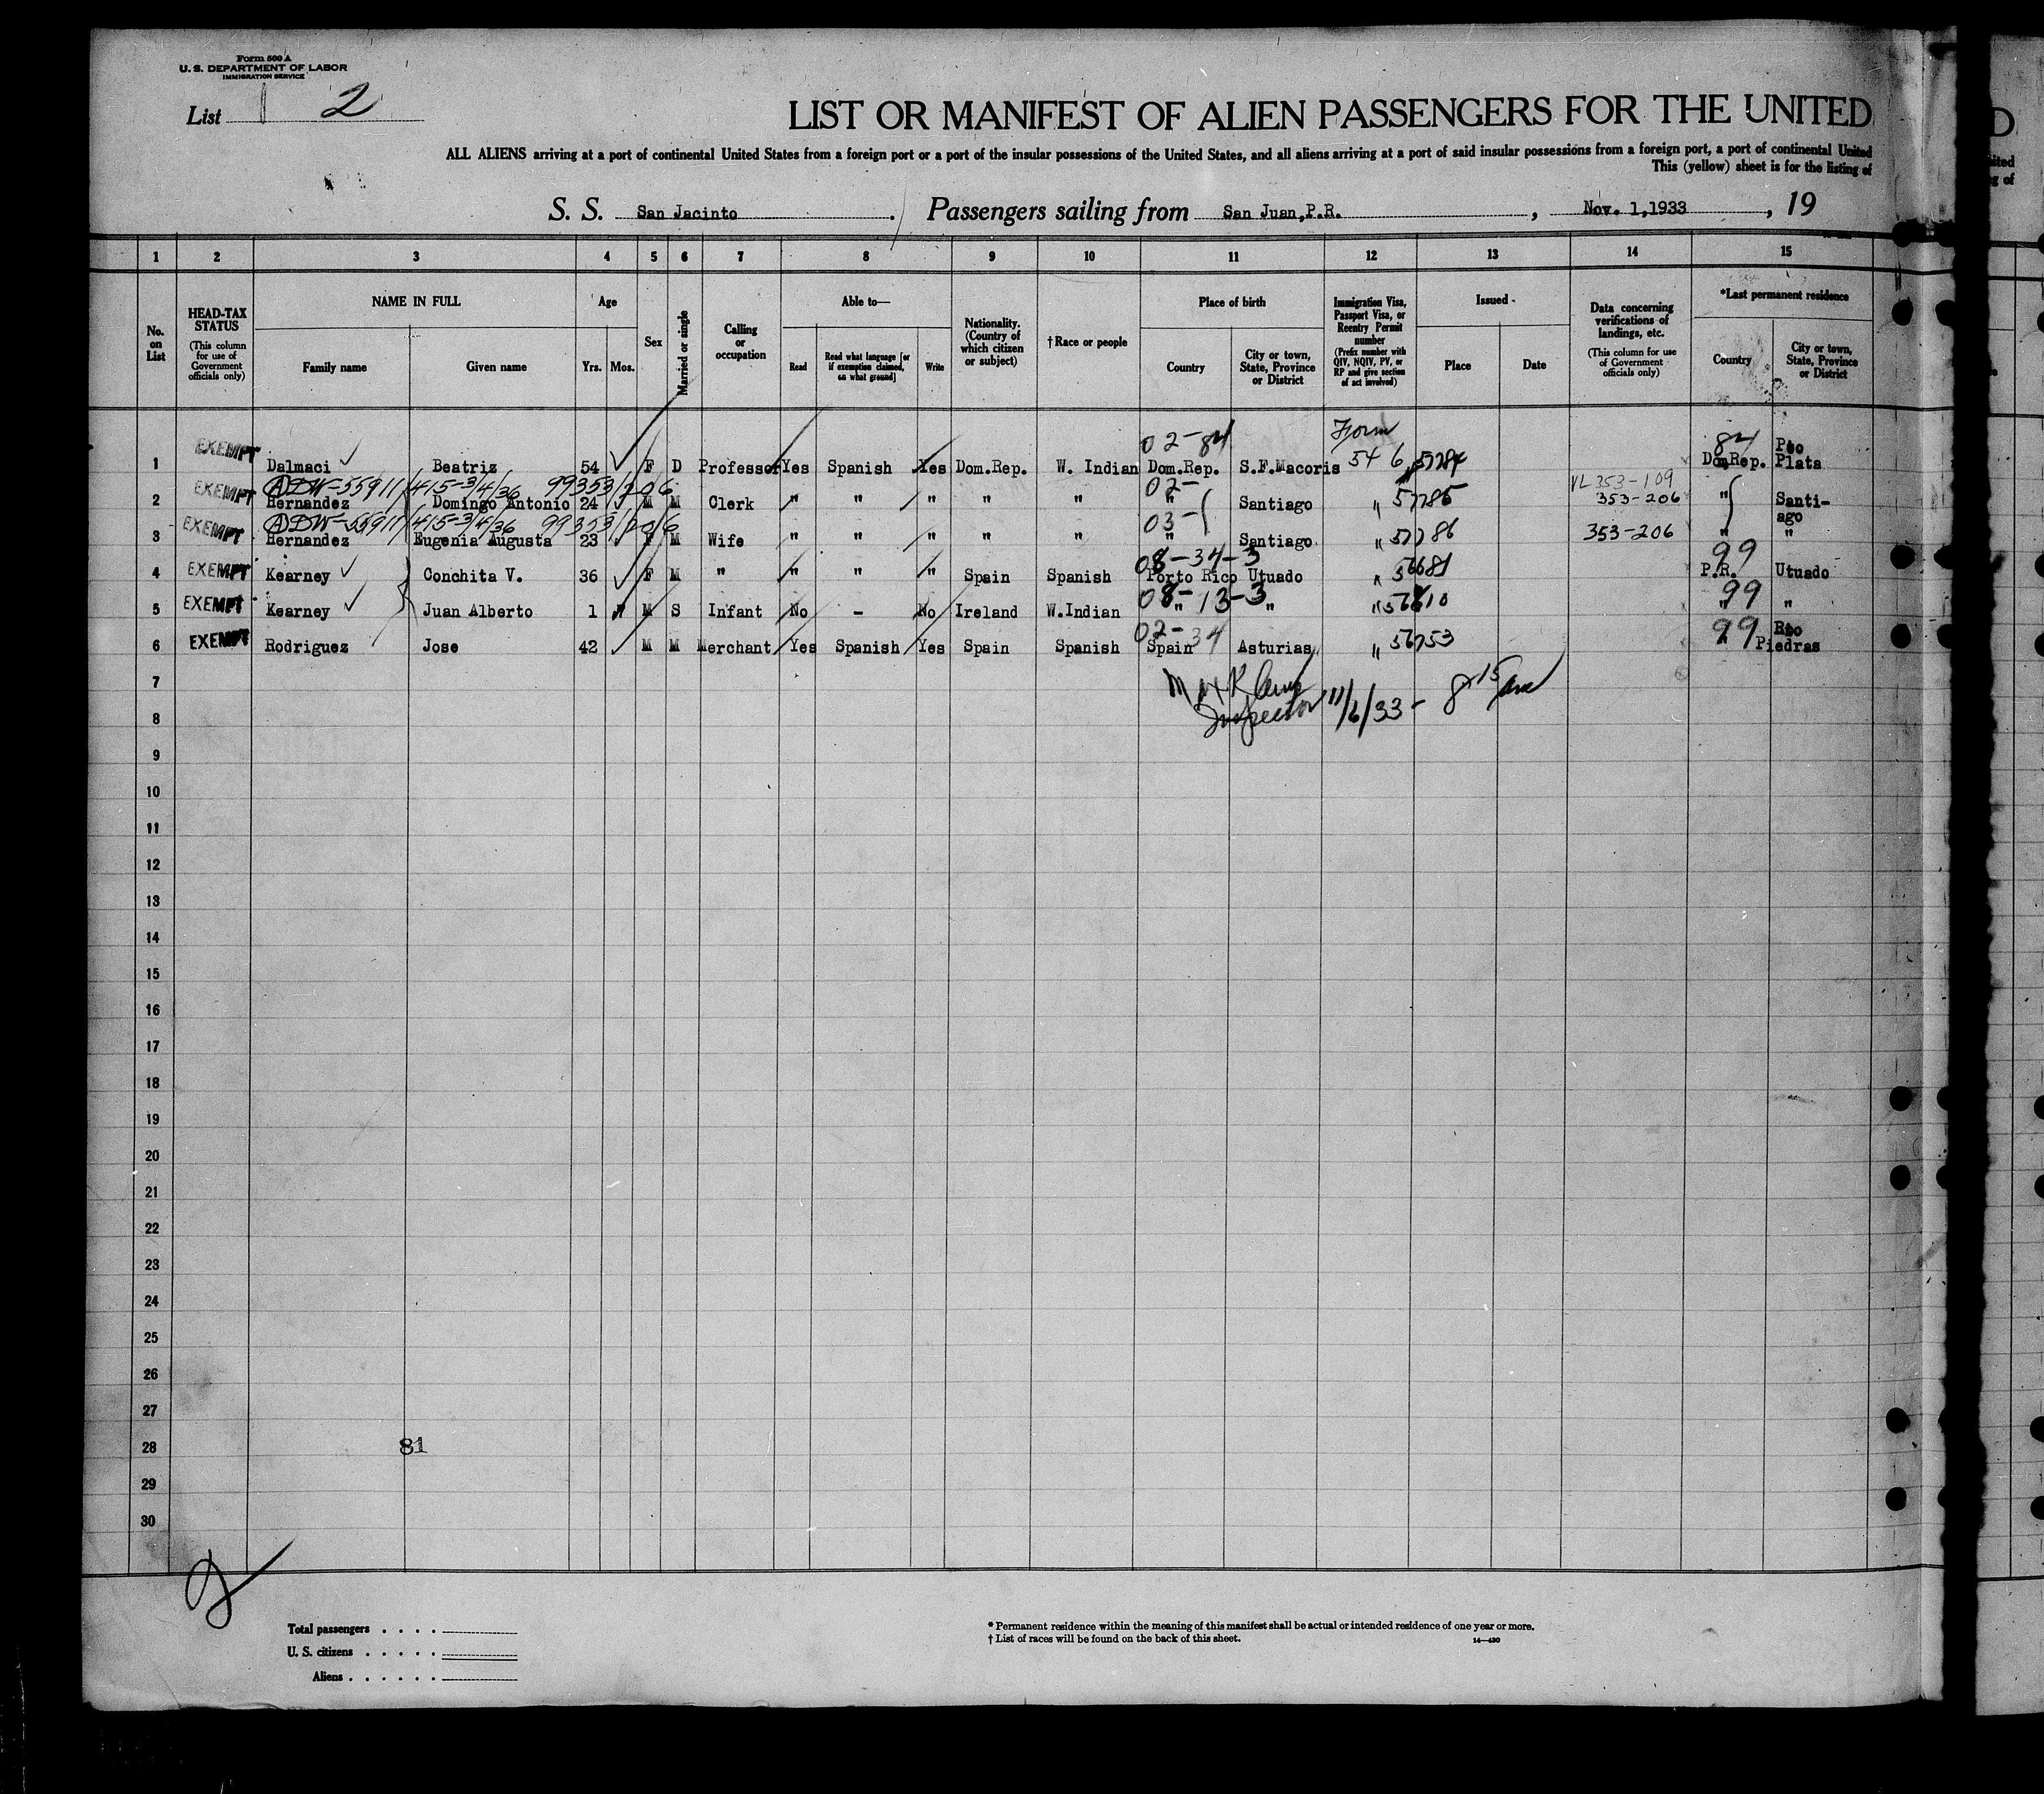 Form 500 A
U. S. DEPARTMENT OF LABOR
IMMIGRATION SERVICE
List 2
LIST OR MANIFEST OF ALIEN PASSENGERS FOR THE UNITED
ALL ALIENS arriving at a port of continental United States from a foreign port or a port of the insular possessions of the United States, and all aliens arriving at a port of said insular possessions from a foreign port, a port of continental United
This (yellow) sheet is for the listing of
S. S. San Jacinto. Passengers sailing from San Juan,P.R., Nov. 1,1933, 19
1 2 3 4 5 6 7 8 9 10 11 12 13 14 15
No. on List
HEAD-TAX STATUS
(This column for use of Government officials only)
NAME IN FULL
Family name
Given name
Age
Yrs. Mos.
Sex
Married or single
Calling or occupation
Able to—
Read
Read what language [or if exemption claimed, on what ground]
Write
Nationality. (Country of which citizen or subject)
† Race or people
Place of birth
Country
City or town, State, Province or District
Immigration Visa, Passport Visa, or Reentry Permit number
(Prefix number with QIV, NQIV, PV, or RP and give section of act involved)
Issued -
Place
Date
Data concerning verifications of landings, etc.
(This column for use of Government officials only)
*Last permanent residence
Country
City or town, State, Province or District
02-84 Form 84 Pto
1 EXEMPT Dalmaci Beatriz 54 F D Professor Yes Spanish Yes Dom.Rep. W. Indian Dom.Rep. S.F.Macoris 546 57284 Dom.Rep. Plata
ADW-55911/415-3/4/36 99353/206 02- VL353-109
2 EXEMPT Hernandez Domingo Antonio 24 M M Clerk " " " " " " Santiago " 57285 353-206 " Santi-
ago
ADW-55911/415-3/4/36 99353/206 03-
3 EXEMPT Hernandez Eugenia Augusta 23 F M Wife " " " " " " Santiago " 57286 353-206 " "
08-34-3 99
4 EXEMPT Kearney Conchita V. 36 F M " " " " Spain Spanish Porto Rico Utuado " 56681 P.R. Utuado
08-13-3 99
5 EXEMPT Kearney Juan Alberto 1 M S Infant No - No Ireland W.Indian " " " " "
02-34 99 Rio
6 EXEMPT Rodriguez Jose 42 M M Merchant Yes Spanish Yes Spain Spanish Spain Asturias " 56753 " Piedras
7
Inspector 11/6/33 - 8 15 am
8
9
10
11
12
13
14
15
16
17
18
19
20
21
22
23
24
25
26
27
28 81
29
30
Total passengers . . . .
U. S. citizens . . . . .
Aliens . . . . . .
* Permanent residence within the meaning of this manifest shall be actual or intended residence of one year or more.
† List of races will be found on the back of this sheet. 14—430